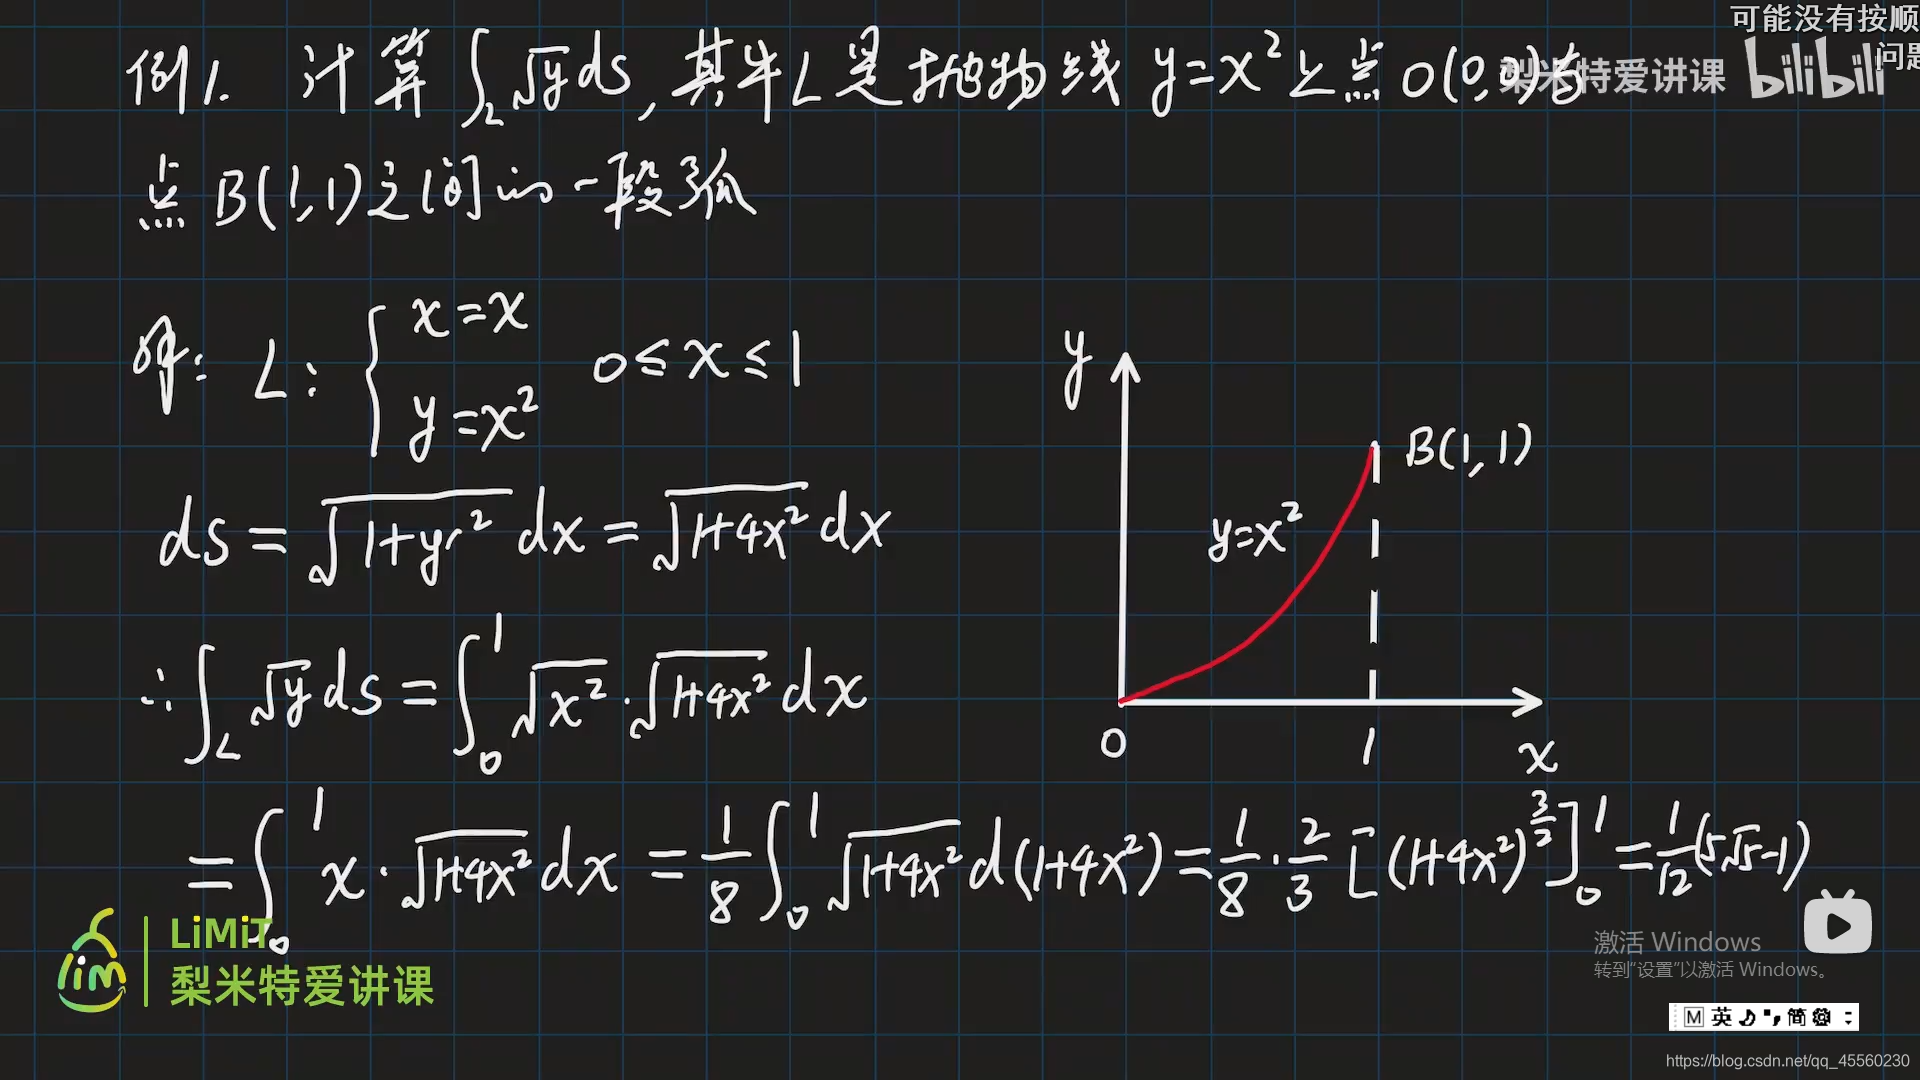 可能没有按顺
问题
梨米特爱讲课 bilibili
例1. 计算 ∫_L √y ds, 其中L是抛物线 y=x² 上点 O(0,0)与
点 B(1,1)之间的一段弧
解: L: { x=x
y=x² 0≤x≤1
ds = √(1+y'²) dx = √(1+4x²) dx
∴ ∫_L √y ds = ∫_0^1 √(x²) · √(1+4x²) dx
= ∫_0^1 x · √(1+4x²) dx = 1/8 ∫_0^1 √(1+4x²) d(1+4x²) = 1/8 · 2/3 [(1+4x²)^(3/2)]_0^1 = 1/12 (5√5-1)
y
B(1,1)
y=x²
0 1 x
LiMiT
lim 梨米特爱讲课
激活 Windows
转到“设置”以激活 Windows。
M 英 简
https://blog.csdn.net/qq_45560230